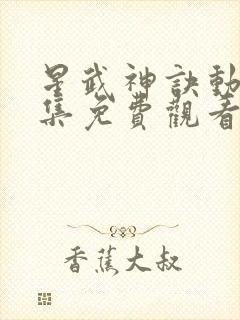 星武神訣動
集免費觀看
香蕉大叔